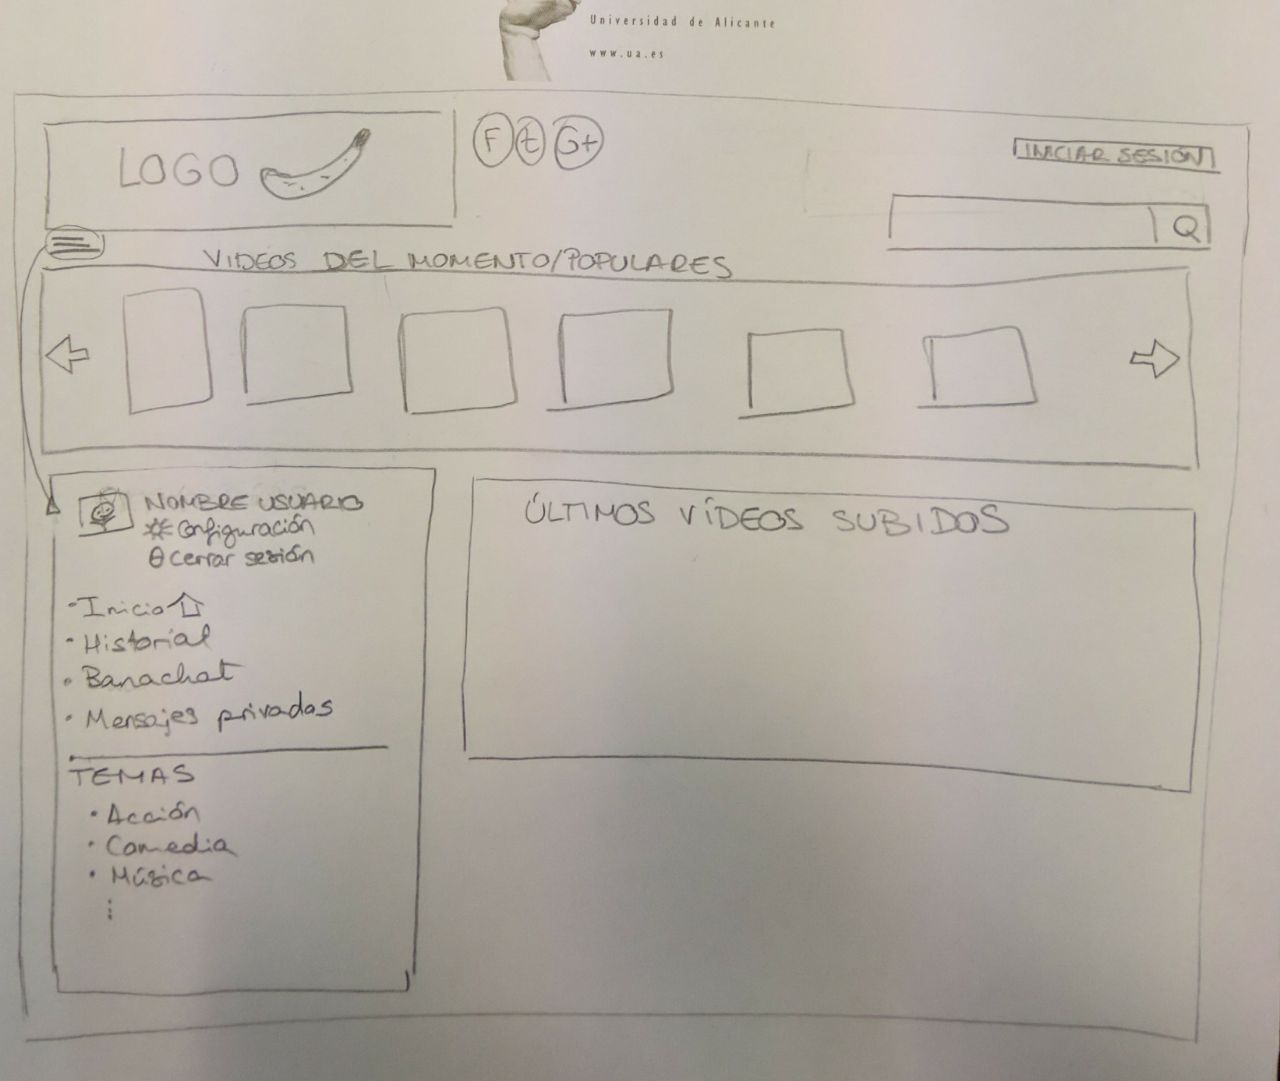 Universidad de Alicante
www.ua.es
LOGO
F t G+
INICIAR SESIÓN
VIDEOS DEL MOMENTO/POPULARES
NOMBRE USUARIO
Configuración
Cerrar sesión
- Inicio
• Historial
• Banachat
• Mensajes privados
TEMAS
• Acción
• Comedia
• Música
⋮
ÚLTIMOS VÍDEOS SUBIDOS